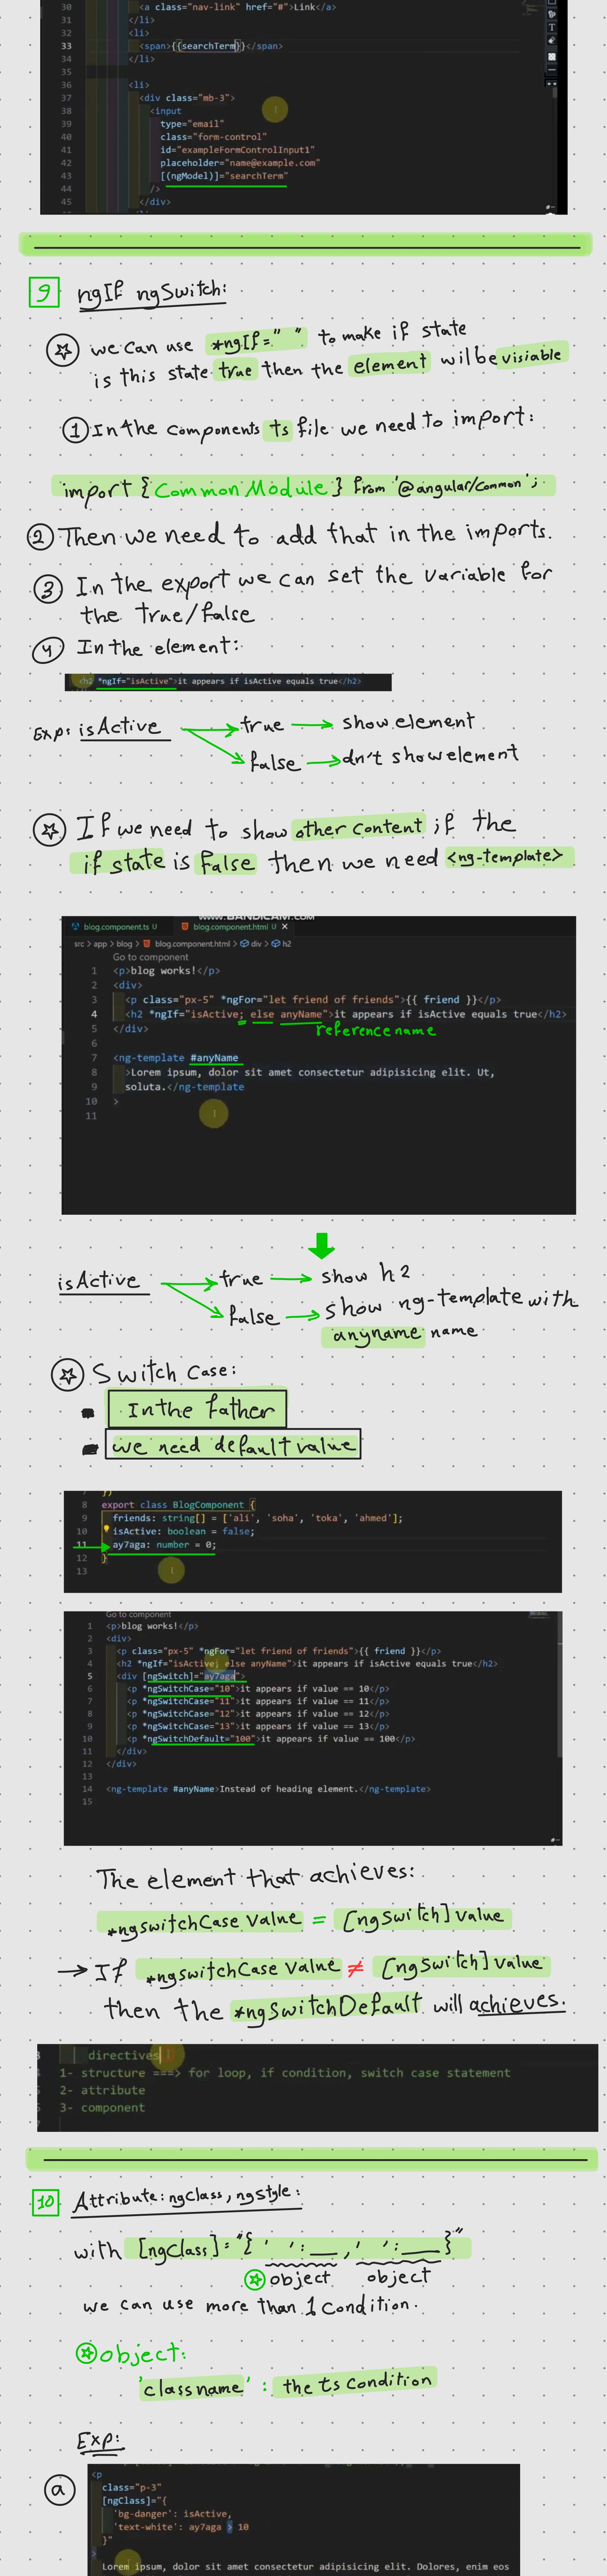 30 <a class="nav-link" href="#">Link</a>
31 </li>
32 <li>
33 <span>{{searchTerm}}</span>
34 </li>
35
36 <li>
37 <div class="mb-3">
38 <input
39 type="email"
40 class="form-control"
41 id="exampleFormControlInput1"
42 placeholder="name@example.com"
43 [(ngModel)]="searchTerm"
44 />
45 </div>
9 ngIf ngSwitch:
we can use *ngIf=" " to make if state
is this state true then the element wil be visiable
1 In the components ts file we need to import:
import { CommonModule } from '@angular/common';
2 Then we need to add that in the imports.
3 In the export we can set the variable for
the true/false
4 In the element:
<h2 *ngIf="isActive">it appears if isActive equals true</h2>
Exp: isActive true show element
false dn't show element
If we need to show other content if the
if state is false then we need <ng-template>
www.BANDICAM.com
blog.component.ts U blog.component.html U X
src > app > blog > blog.component.html > div > h2
Go to component
1 <p>blog works!</p>
2 <div>
3 <p class="px-5" *ngFor="let friend of friends">{{ friend }}</p>
4 <h2 *ngIf="isActive; else anyName">it appears if isActive equals true</h2>
5 </div>
reference name
6
7 <ng-template #anyName
8 >Lorem ipsum, dolor sit amet consectetur adipisicing elit. Ut,
9 soluta.</ng-template
10 >
11
isActive true show h2
false show ng-template with
anyname name
Switch Case:
In the father
we need default value
7 })
8 export class BlogComponent {
9 friends: string[] = ['ali', 'soha', 'toka', 'ahmed'];
10 isActive: boolean = false;
11 ay7aga: number = 0;
12 }
13
Go to component
1 <p>blog works!</p>
2 <div>
3 <p class="px-5" *ngFor="let friend of friends">{{ friend }}</p>
4 <h2 *ngIf="isActive; else anyName">it appears if isActive equals true</h2>
5 <div [ngSwitch]="ay7aga">
6 <p *ngSwitchCase="10">it appears if value == 10</p>
7 <p *ngSwitchCase="11">it appears if value == 11</p>
8 <p *ngSwitchCase="12">it appears if value == 12</p>
9 <p *ngSwitchCase="13">it appears if value == 13</p>
10 <p *ngSwitchDefault="100">it appears if value == 100</p>
11 </div>
12 </div>
13
14 <ng-template #anyName>Instead of heading element.</ng-template>
15
The element that achieves:
*ngSwitchCase Value = [ngSwitch] value
→ If *ngSwitchCase Value ≠ [ngSwitch] value
then the *ngSwitchDefault will achieves.
3 directives
1- structure ===> for loop, if condition, switch case statement
5 2- attribute
6 3- component
10 Attribute: ngClass, ngStyle:
with [ngClass]="{ ' ': __ , ' ': __ }"
object object
we can use more than 1 Condition.
object:
'class name' : the ts condition
Exp:
a
<p
class="p-3"
[ngClass]="{
'bg-danger': isActive,
'text-white': ay7aga > 10
}"
>
Lorem ipsum, dolor sit amet consectetur adipisicing elit. Dolores, enim eos